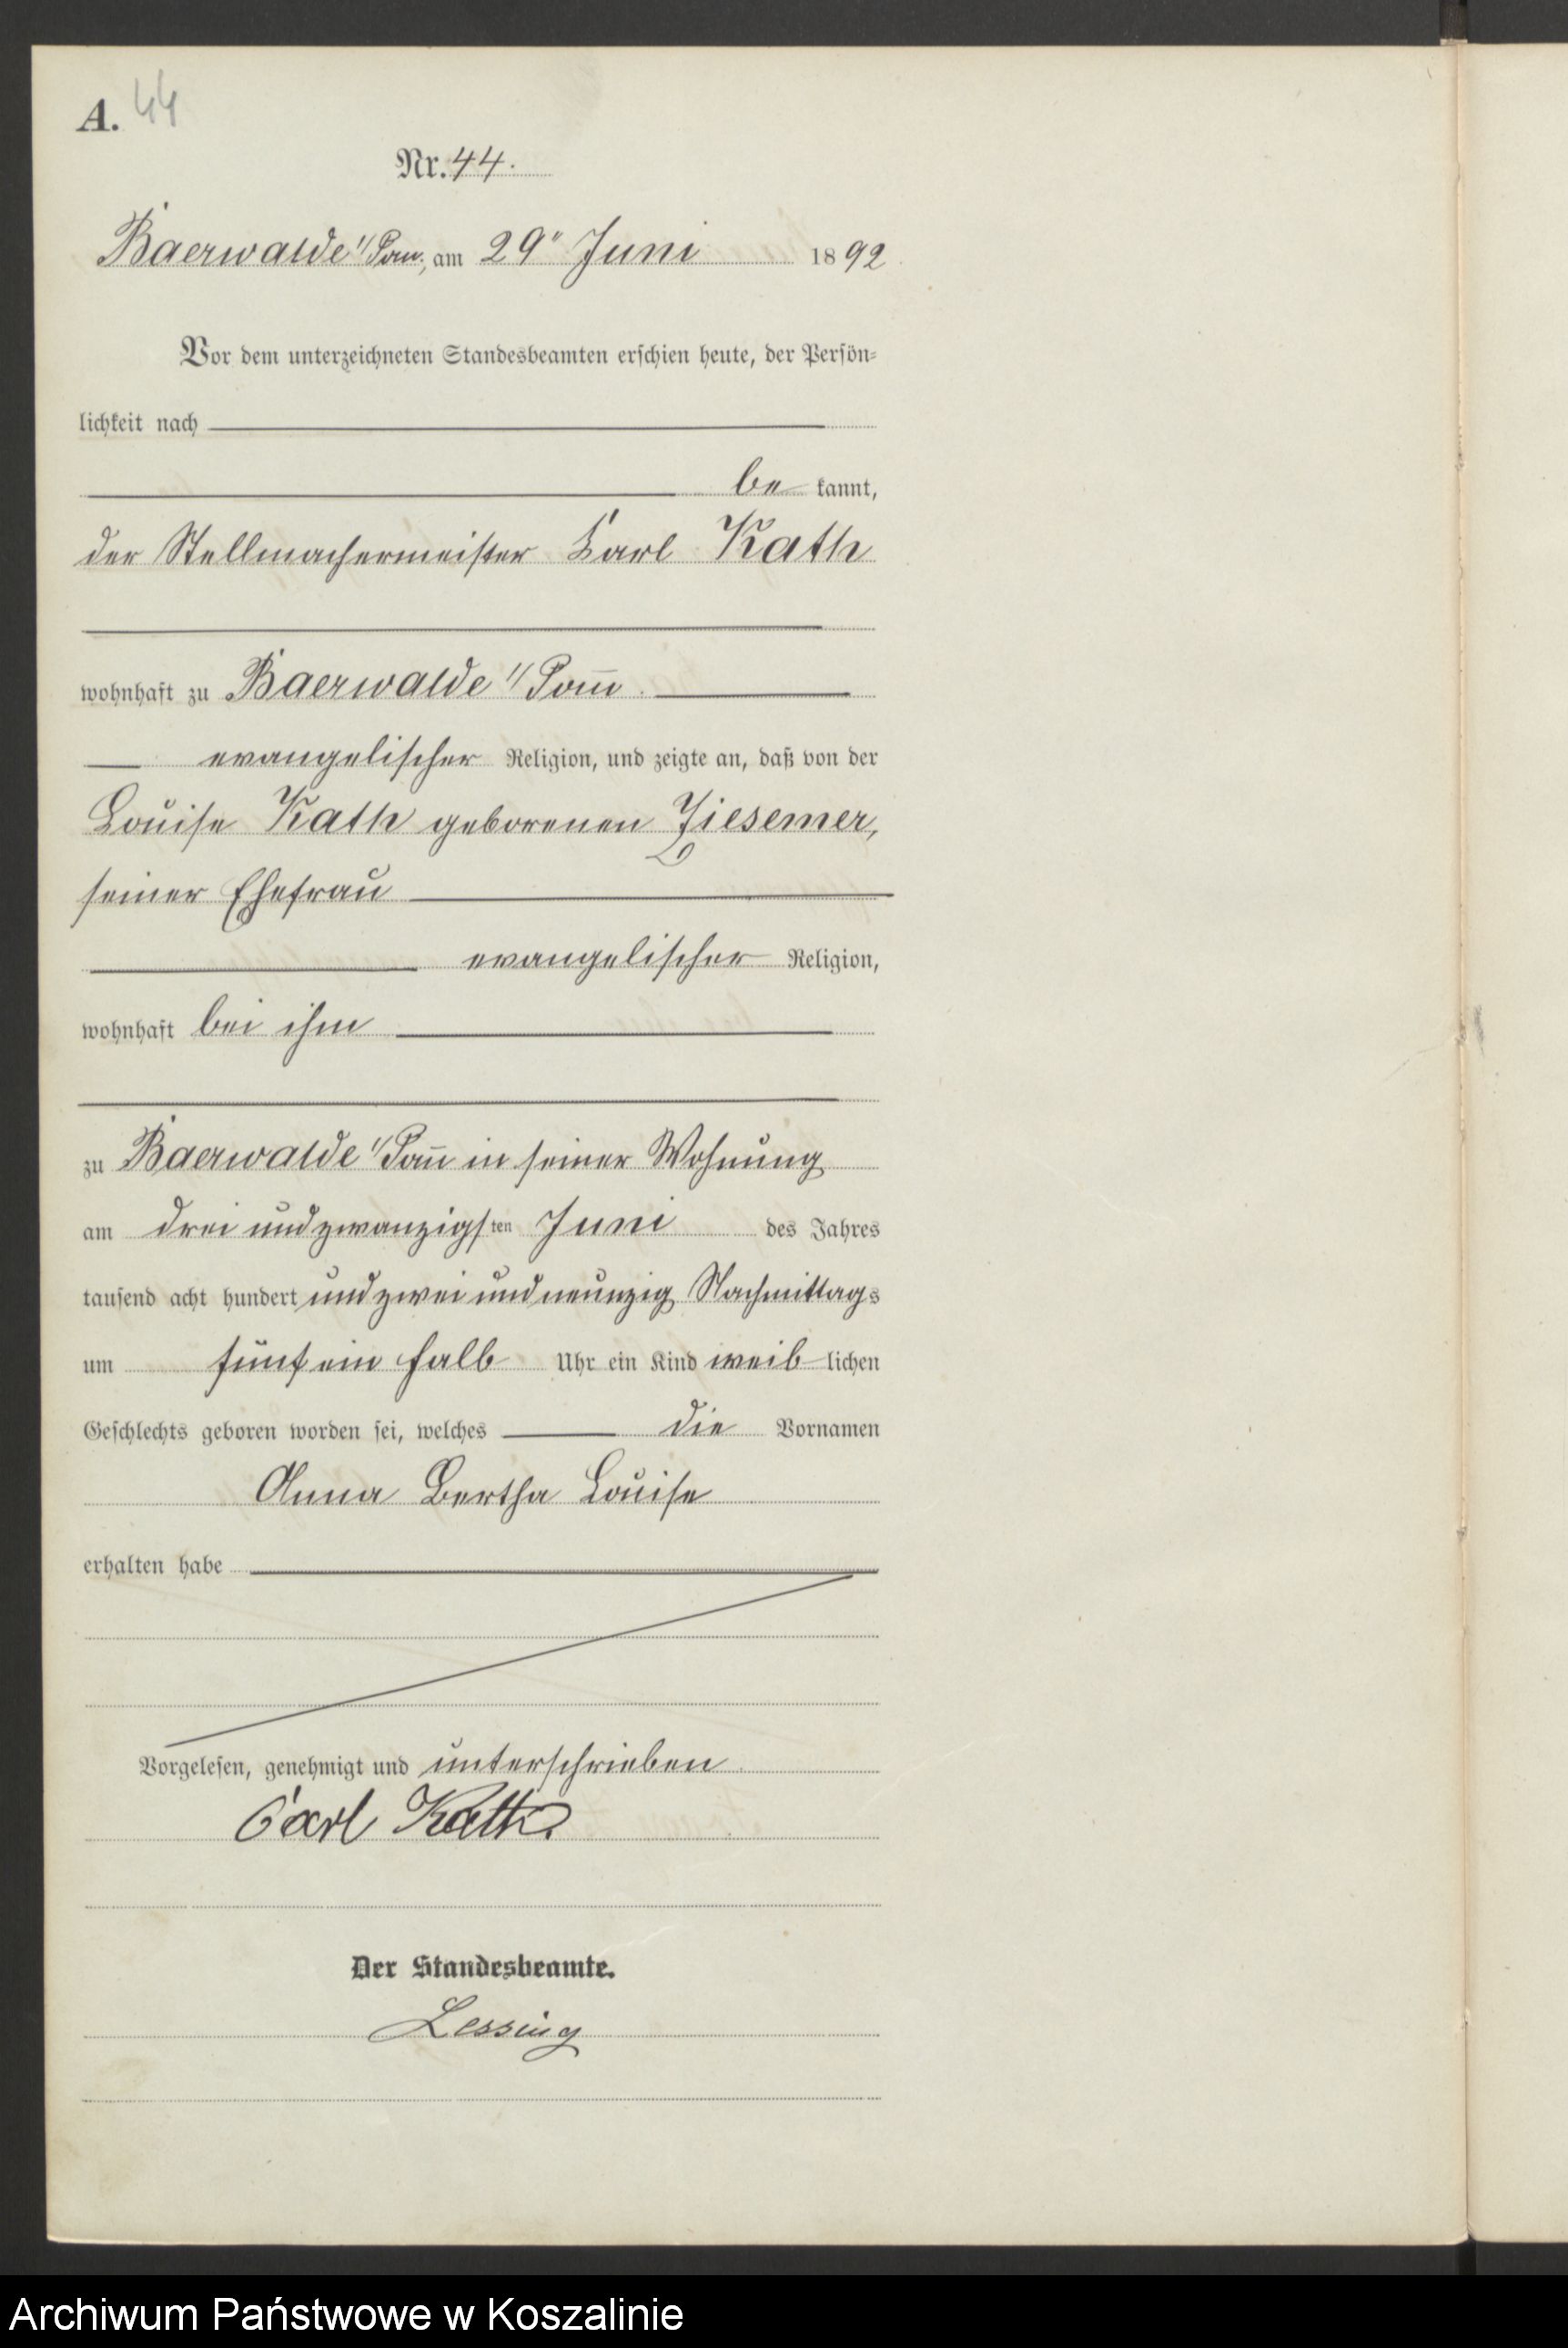 A. 44
Nr. 44.
Baerwalde i/Pom., am 29" Juni 1892
Vor dem unterzeichneten Standesbeamten erschien heute, der Persön-
lichkeit nach
be kannt,
der Stellmachermeister Carl Kath
wohnhaft zu Baerwalde i/Pom̄.
evangelischer Religion, und zeigte an, daß von der
Louise Kath geborenen Ziesemer,
seiner Ehefrau
evangelischer Religion,
wohnhaft bei ihm
zu Baerwalde i/Pom̄ in seiner Wohnung
am drei und zwanzigsten Juni des Jahres
tausend acht hundert und zwei und neunzig Nachmittags
um fünf ein halb Uhr ein Kind weiblichen
Geschlechts geboren worden sei, welches die Vornamen
Anna Bertha Louise
erhalten habe
Vorgelesen, genehmigt und unterschrieben
Carl Kath
Der Standesbeamte.
Lessing
Archiwum Państwowe w Koszalinie